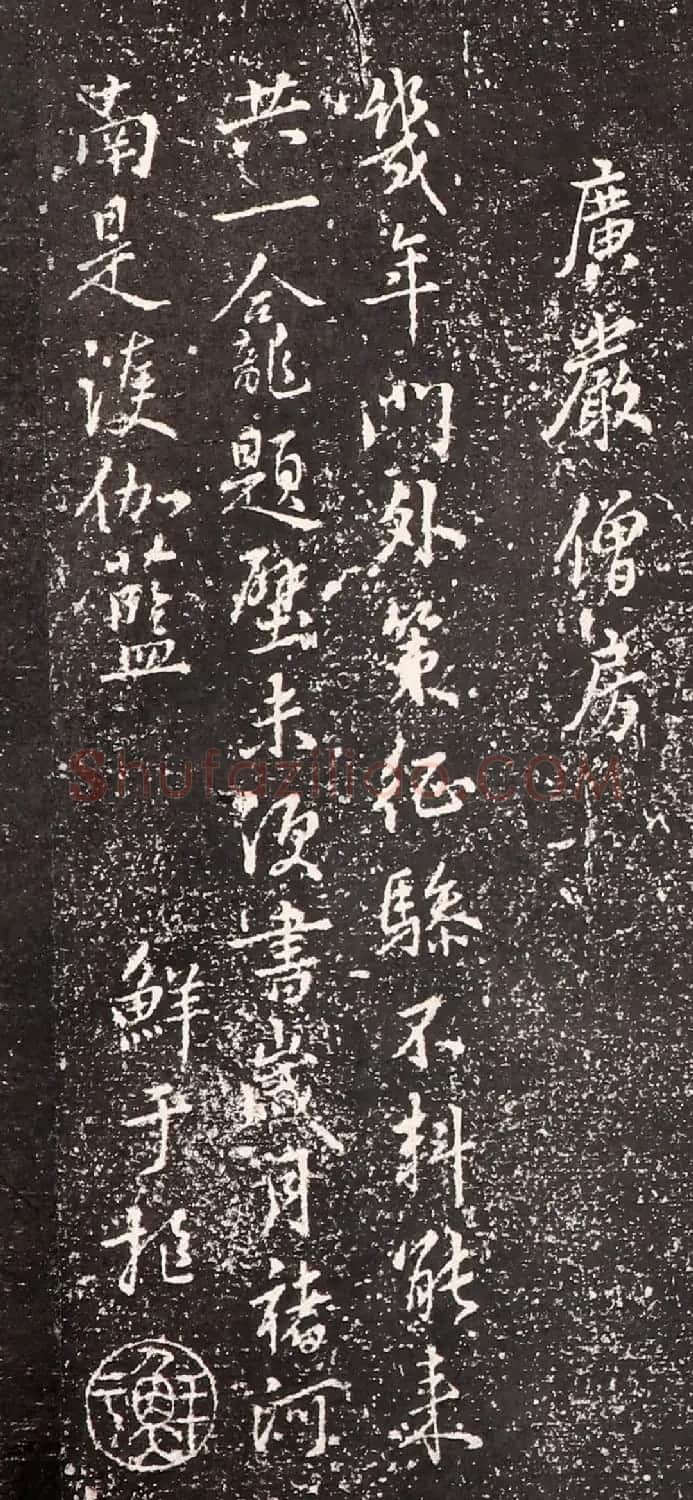 廣嚴僧房
幾年門外策征驂不料能來
共一龕題壁未須書歲月褚河
南是漢伽藍
鮮于樞
Shufaziliao.COM